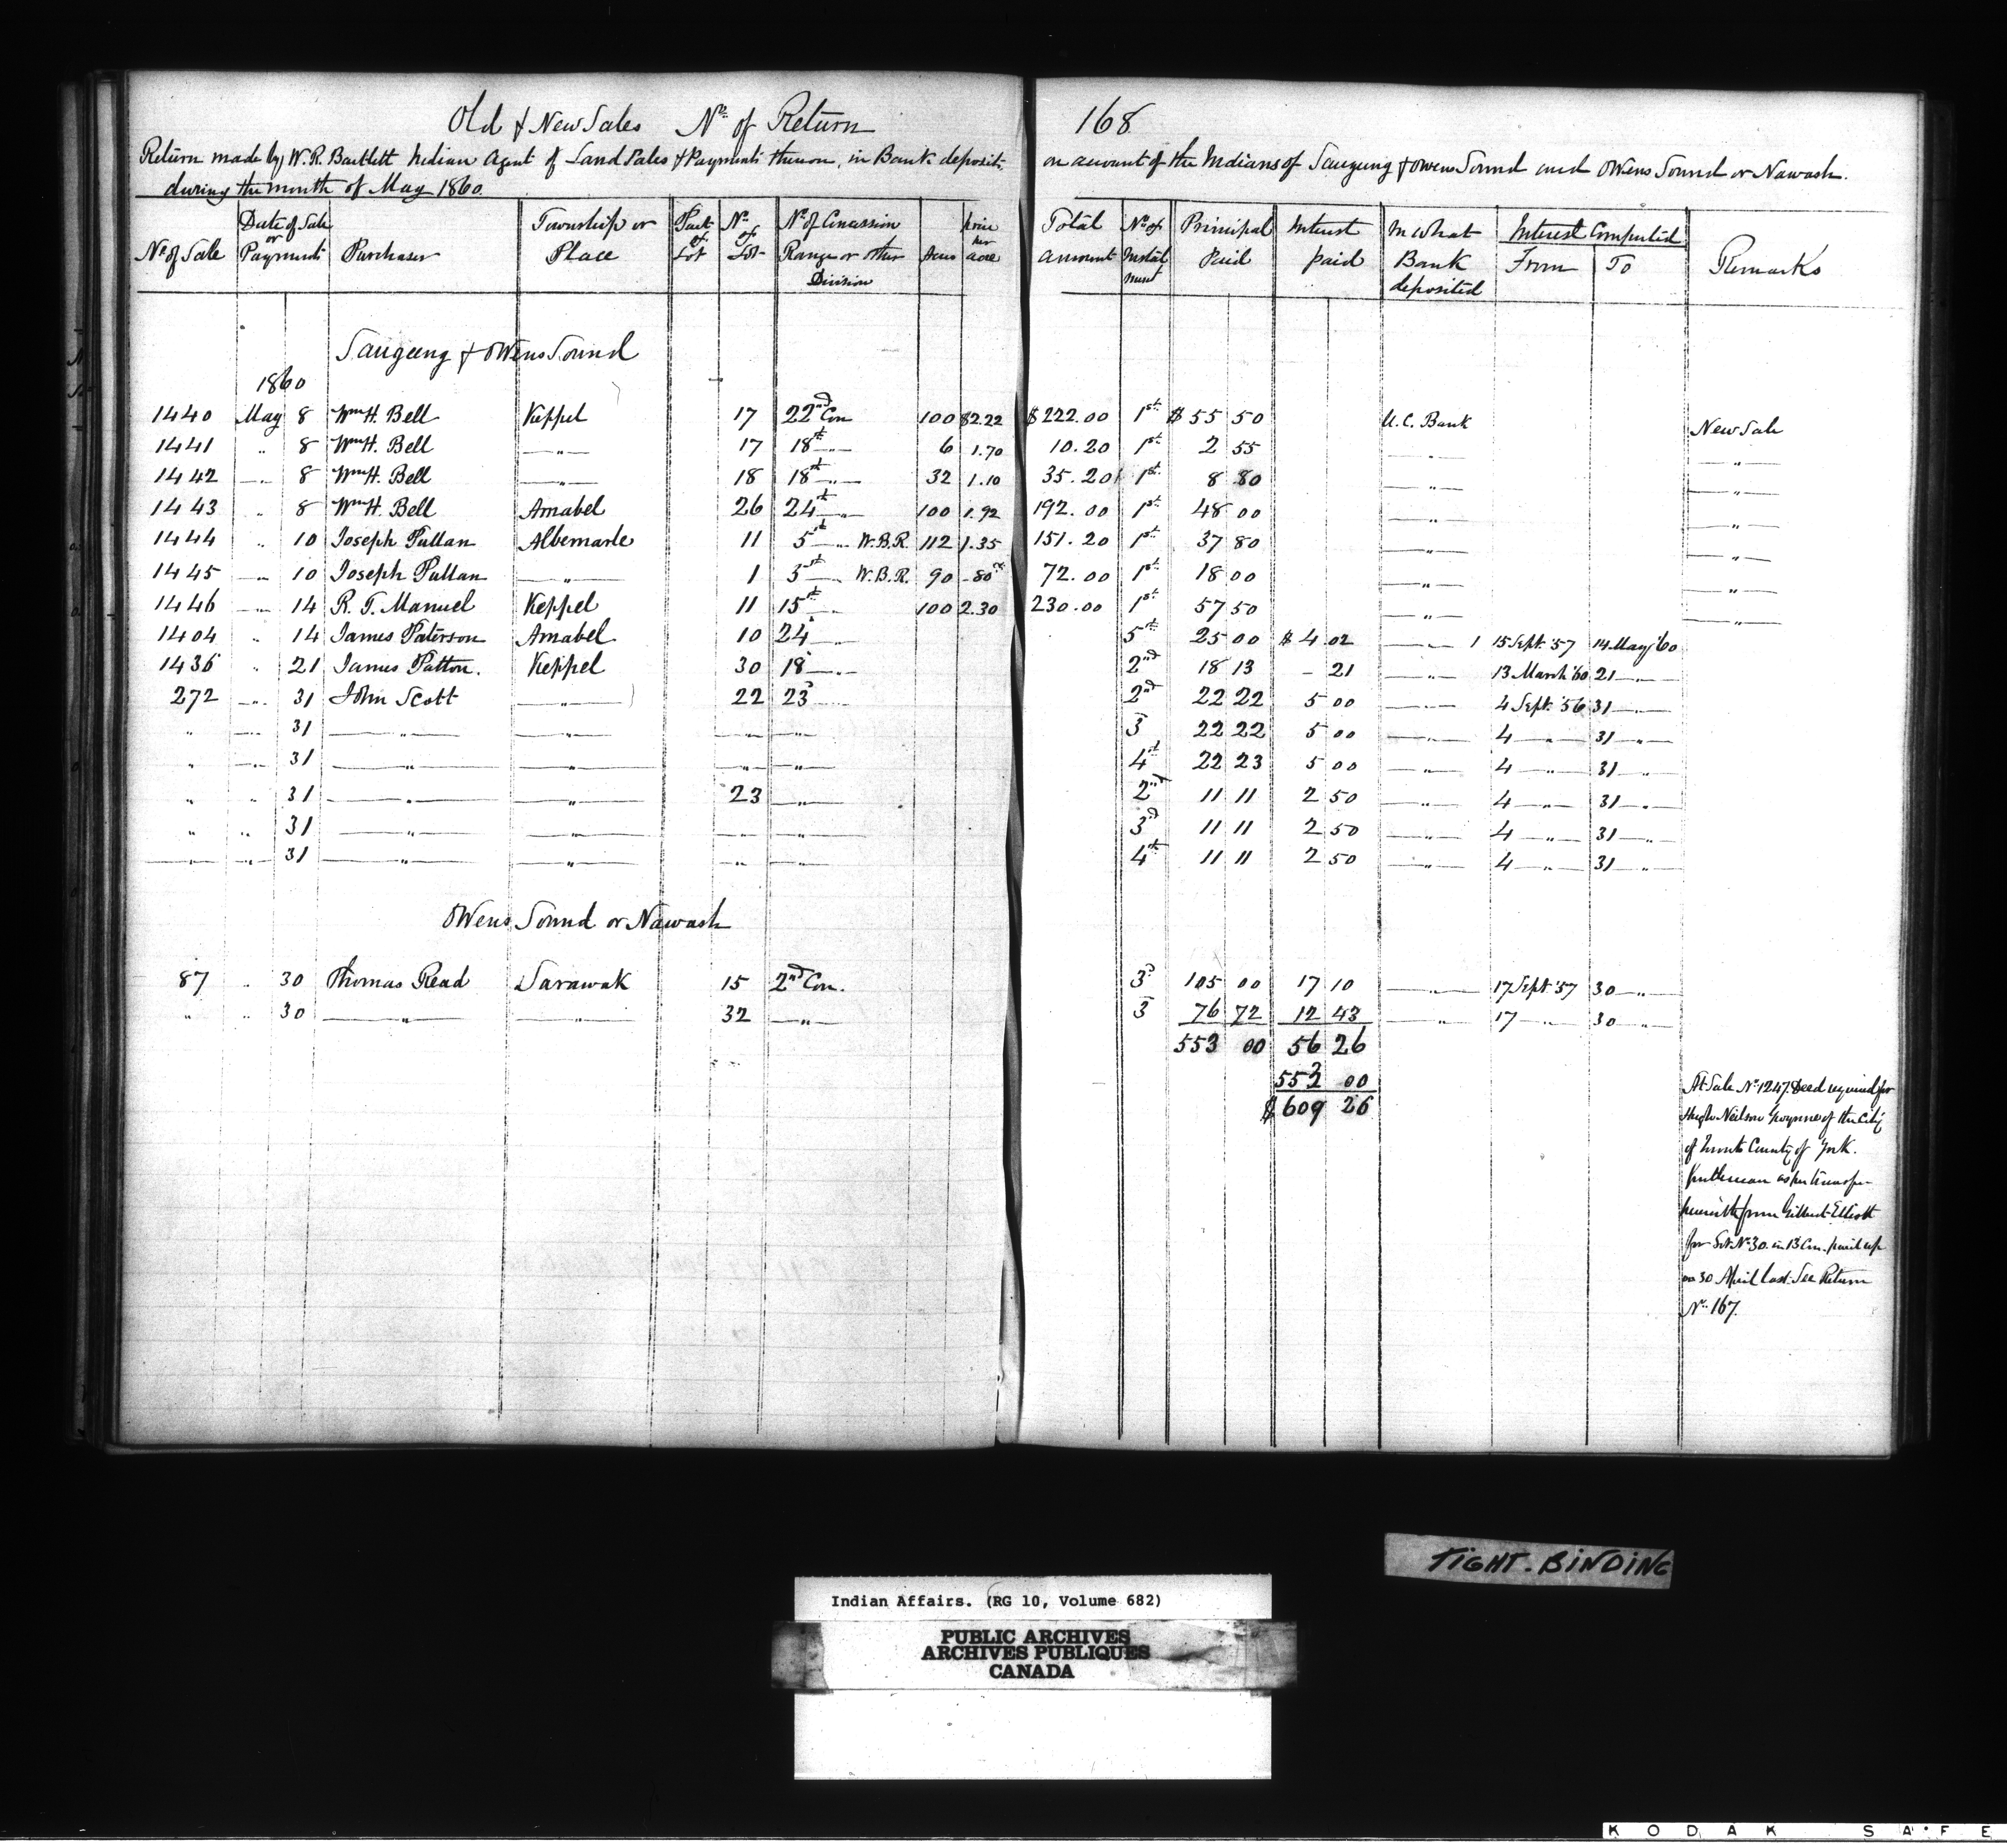 Old & New Sales No. of Return 168
Return made by W. R. Bartlett Indian Agent of Land Sales & Payments thereon, in Bank deposits, on account of the Indians of Saugeeng & Owens Sound and Owens Sound or Nawash.
during the month of May 1860.
No. of Sale | Date of Sale or Payment | Purchaser | Township or Place | Part of Lot | No. of Lot | No. of Concession Range or other Division | Acres | Price per acre | Total amount | No. of Instalment | Principal Paid | Interest paid | In what Bank deposited | Interest Computed From | To | Remarks
Saugeeng & Owens Sound
1860
1440 May 8 Wm H. Bell Keppel 17 22nd Con 100 $2.22 $222.00 1st $55 50 U.C. Bank New Sale
1441 " 8 Wm H. Bell " 17 18th " 6 1.70 10.20 1st 2 55 " "
1442 " 8 Wm H. Bell " 18 18th " 32 1.10 35.20 1st 8 80 " "
1443 " 8 Wm H. Bell Amabel 26 24th " 100 1.92 192.00 1st 48 00 " "
1444 " 10 Joseph Pullan Albemarle 11 5th " W.B.R. 112 1.35 151.20 1st 37 80 " "
1445 " 10 Joseph Pullan " 1 3 " W.B.R. 90 -80 72.00 1st 18 00 " "
1446 " 14 R. T. Manuel Keppel 11 15th " 100 2.30 230.00 1st 57 50 " "
1404 " 14 James Paterson Amabel 10 24 " 5th 25 00 $4.02 " 1 15 Sept. '57 14 May '60
1436 " 21 James Patton. Keppel 30 18 " 2nd 18 13 - 21 " 13 March '60 21 "
272 " 31 John Scott " 22 23 " 2nd 22 22 5 00 " 4 Sept. '56 31 "
" " 31 " " " " 3 22 22 5 00 " 4 " 31 "
" " 31 " " " " 4th 22 23 5 00 " 4 " 31 "
" " 31 " " 23 " 2nd 11 11 2 50 " 4 " 31 "
" " 31 " " " " 3d 11 11 2 50 " 4 " 31 "
" " 31 " " " " 4th 11 11 2 50 " 4 " 31 "
Owens Sound or Nawash
87 " 30 Thomas Read Sarawak 15 2nd Con. 3d 105 00 17 10 " 17 Sept. '57 30 "
" " 30 " " 32 " 3 76 72 12 43 " 17 " 30 "
553 00 56 26
553 00
$609 26
At Sale No. 1247. Deed required for
Hugh Neilson Gwynne of the City
of Toronto County of York.
Gentleman as per transfer
herewith from Gilbert Elliott
for Lot No. 30. in 13 Con. paid up
on 30 April last. See Return
No. 167.
TIGHT-BINDING
Indian Affairs. (RG 10, Volume 682)
PUBLIC ARCHIVES
ARCHIVES PUBLIQUES
CANADA
KODAK SAFE